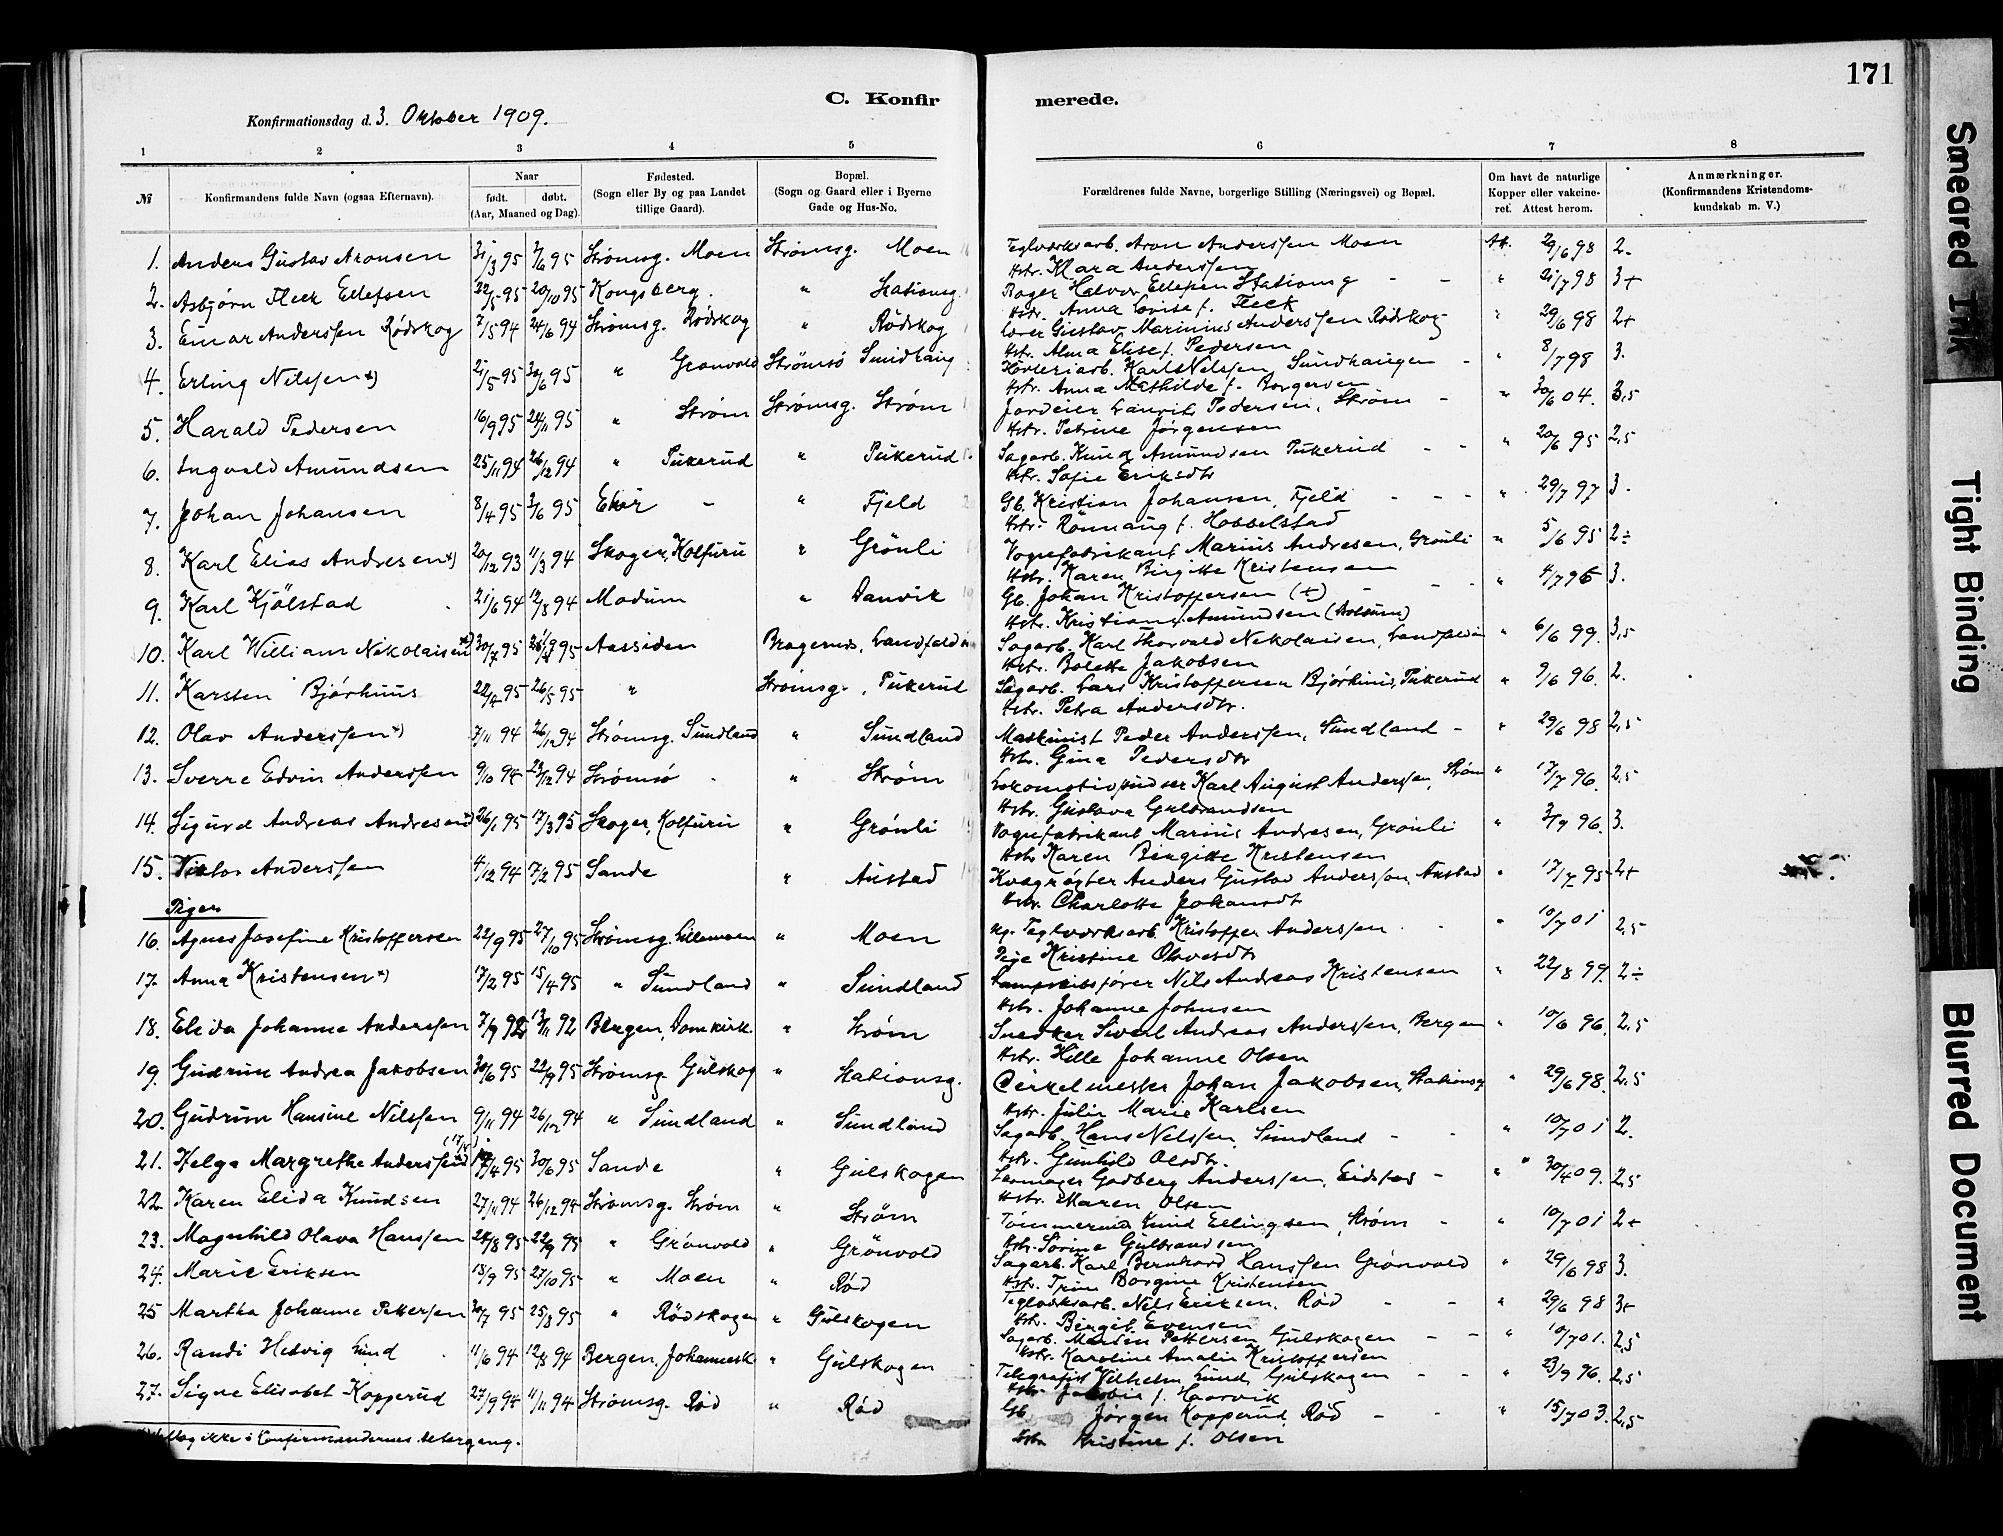 171
C. Konfir merede.
Konfirmationsdag d. 3. Oktober 1909.
1 2 3 4 5 6 7 8
№
Konfirmandens fulde Navn (ogsaa Efternavn).
Naar
født. døbt.
(Aar, Maaned og Dag).
Fødested.
(Sogn eller By og paa Landet
tillige Gaard).
Bopæl.
(Sogn og Gaard eller i Byerne
Gade og Hus-No.
Forældrenes fulde Navne, borgerlige Stilling (Næringsvei) og Bopæl.
Om havt de naturlige
Kopper eller vakcine-
ret. Attest herom.
Anmærkninger.
(Konfirmandens Kristendoms-
kundskab m. V.)
1. Anders Gustav Aronsen 31/3 95 3/6 95 Strømsg. Moen Strømsg. Moen Teglværksarb. Aron Anderssen Moen Att. 29/6 98 2-
Hstr. Klara Anderssen
2. Asbjørn Fleck Ellefsen 22/5 95 20/10 95 Kongsberg. " Stationsg. Bager Halvor Ellefsen Stationsg - - " 21/7 98 3+
Hstr. Anna Lovise f. Fleck
3. Einar Anderssen Rødskog 7/5 94 24/6 94 Strømsg. Rødskog " Rødskog Gustav Marinius Anderssen Rødskog " 29/6 98 2+
Hstr. Alma Elise f. Pedersen
4. Erling Nilssen +) 21/5 95 30/6 95 " Grønvold Strømsø Smidhaug Karl Nilssen Sundhaugen - " 8/7 98 3.
Hstr. Anna Mathilde f. Borgersen
5. Harald Pedersen 16/9 95 24/11 95 " Strøm Strømsg. Strøm Jordeier Lauritz Pedersen, Strøm - " 30/6 04. 3,5
Hstr. Petrine Jørgensen
6. Ingvald Amundsen 25/11 94 26/12 94 " Pukerud " Pukerud Sagarb. Knud Amundsen Pukerud - - " 20/6 95 2,5
Hstr. Sofie Eriksdtr
7. Johan Johansen 8/4 95 3/6 95 Eker - " Fjeld Gb. Kristian Johansen, Fjeld - - - " 29/7 97 3.
Hstr. Rönnaug f. Hobbelstad
8. Karl Elias Andresen +) 20/12 93 11/3 94 Skoger, Kolfuru " Grönli Vognfabrikant Marius Andresen, Grönli " 5/6 95 2÷
Hstr. Karen Birgitte Kristensen
9. Karl Kjölstad 21/6 94 12/8 94 Modum " Danvik Gb. Johan Kristoffersen (+) - - - " 4/7 95 3.
Hstr. Kristiane Amundsen
10. Karl William Nikolaisen +) 30/7 95 Aassiden Bragernes, Landfalden Sagarb. Karl Thorvald Nikolaisen, Landfalden " 6/6 99. 3,5
Hstr. Bolette Jakobsen
11. Karsten Bjórhuus 22/4 95 26/5 95 " Strømsg. , Pukerud Sagarb. Lars Kristoffersen Bjórhuus, Pukerud " 9/6 96. 2.
Hstr. Petra Andersdtr.
12. Olav Anderssen +) 7/11 94 26/12 94 Strømsg. Sundland " Sundland Maskinist Peder Anderssen, Sundland - " 29/6 98 2,5
Hstr. Gina Pedersdtr
13. Sverre Edvin Anderssen 9/10 94 23/12 94 Strømsø - " Strøm Lokomotivpudser Karl August Anderssen, Strøm " 17/7 96. 2,5
Hstr. Gustava Gulbrandsen
14. Sigurd Andreas Andresen +) 26/1 95 17/3 95 Skoger, Kolfuru " Grönli Vognfabrikant Marius Andresen, Grönli " 3/9 96. 3.
Hstr. Karen Birgitte Kristensen
15. Viktor Anderssen 4/12 94 17/2 95 Sande " Austad Kvægrøgter Anders Gustav Anderssen, Austad " 17/7 95 2+
Hstr. Charlotte Johansdt
Piger
16. Agnes Josefine Kristoffersen 22/9 95 27/10 95 Strømsg. Lillemoen " Moen Teglværksarb. Kristoffer Anderssen - - " 10/7 01 2,5
Pige Kristine Olavesdtr
17. Anna Kristensen +) 17/2 95 15/4 95 " Sundland " Sundland Nils Andreas Kristensen " 22/8 99. 2÷
Hstr. Johanne Johnsen
18. Elida Johanne Anderssen 7/9 92 13/11 92 Bergen, Domkirk. " Strøm Snedker Sivert Andreas Anderssen, Bergen " 10/6 96. 2,5
Hstr. Hille Johanne Olsen
19. Gudrun Andrea Jakobsen 30/6 95 22/9 95 Strømsg. Gulskog " Stationsg. Cirkelmester Johan Jakobsen, Stationsg " 29/6 98. 2,5
Hstr. Julie Marie Karlsen
20. Gudrun Hansine Nilssen 9/11 94 26/12 94 " Sundland " Sundland Sagarb. Hans Nilssen, Sundland - - " 10/7 01 2.
Hstr. Gunhild Olsdtr.
21. Helga Margrethe Anderssen 17/4 95 30/6 95 Sande " Gulskogen Godberg Anderssen, Eidstad - " 30/4 09. 2,5
Hstr. Maren Olsen
22. Karen Elida Knudsen 27/11 94 26/12 94 Strømsg. Strøm " Strøm Tømmermd Knud Ellingsen, Strøm - " 10/7 01 2+
Hstr. Sørine Gulbrandsen
23. Magnhild Olava Hanssen 24/8 95 22/9 95 " Grönvold " Grönvold Sagarb. Karl Bernhard Hanssen Grønvold " 29/6 98 3.
Hstr. Trine Borgine Kristensen
24. Marie Eriksen 18/9 95 27/10 95 " Moen " Rød Teglværksarb. Nils Eriksen. Rød - - " 29/6 98 3+
Hstr. Birgit Evensen
25 Martha Johanne Pettersen 30/7 95 25/8 95 " Rödskogen " Gulskogen Sagarb. Martin Pettersen Gulskogen - - " 10/7 01. 2,5
Hstr. Karoline Amalie Kristoffersen
26. Randi Hedvig Lund 11/6 94 12/8 94 Bergen, Johannesk " Gulskogen Telegrafist Vilhelm Lund, Gulskogen - - " 23/9 96. 2,5
Hstr. Jakobia f. Haarvik
27. Signe Elisabet Kopperud 27/9 94 11/11 94 Strømsg. Rød " Rød Gb. Jørgen Kopperud, Rød - - " 15/7 03. 2,5
Hstr. Kristine f. Olsen
ikke i Konfirmandernes altergang.
Smeared Ink
Tight Binding
Blurred Document